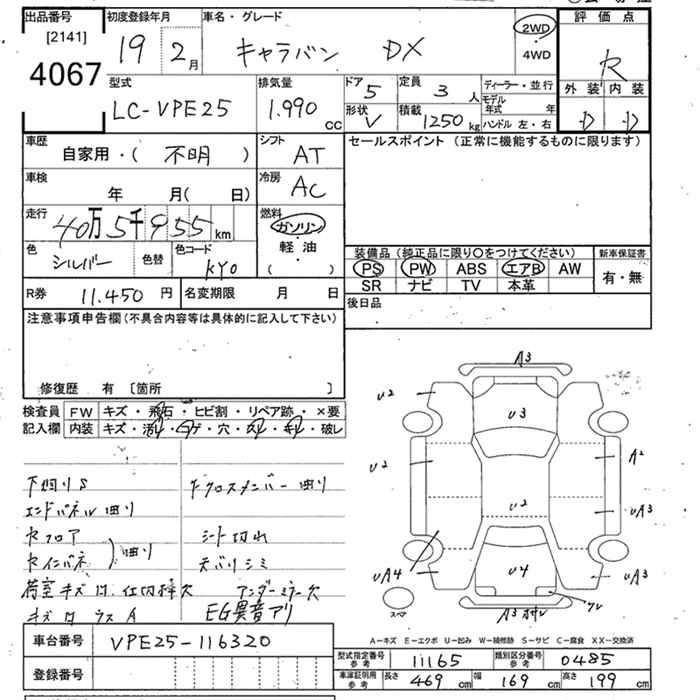 出品番号 初度登録年月 車名・グレード 評価点
[2141] 19 2月 キャラバン DX 2WD R
4067 4WD
型式 排気量 ドア 定員 ディーラー・並行 外装 内装
LC-VPE25 1.990 cc 5 3人 モデル年式 年
形状 V 積載 1250 kg ハンドル 左・右 D D
車歴 シフト セールスポイント (正常に機能するものに限ります)
自家用・( 不明 ) AT
車検 冷房
年 月( 日) AC
走行 燃料
40万5千955 km ガソリン
色 色替 色コード 軽・油 装備品 (純正品に限り〇をつけてください) 新車保証書
シルバー KY0 ( ) PS PW ABS エアB AW 有・無
SR ナビ TV 本革
R券 11.450 円 名変期限 月 日 後日品
注意事項申告欄(不具合内容等は具体的に記入して下さい)
修復歴 有 〔箇所 〕
検査員 FW キズ・飛石・ヒビ割・リペア跡・×要
記入欄 内装 キズ・汚れ・コゲ・穴・ ・ ・破レ
下廻りS
エンドパネル曲り
セフロア
セインパネ 曲り
荷室キズ凹 仕切棒欠
キズ凹ウスA
Fクロスメンバー曲り
シート切れ
天バリシミ
アンダーミラー欠
EG異音アリ
A3
U2 U3
U2 A2
U2 UA3
UA4 U4 UA3
スペア A3
A-キズ E-エクボ U-凹み W-補修跡 S-サビ C-腐食 XX-交換済
車台番号 VPE25-116320
登録番号
型式指定番号 参考 11165 類別区分番号 参考 0485
車庫証明用 参考 長さ 469 cm 幅 169 cm 高さ 199 cm